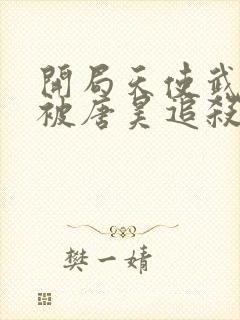 開局天使武
被唐昊追殺
樊一婧